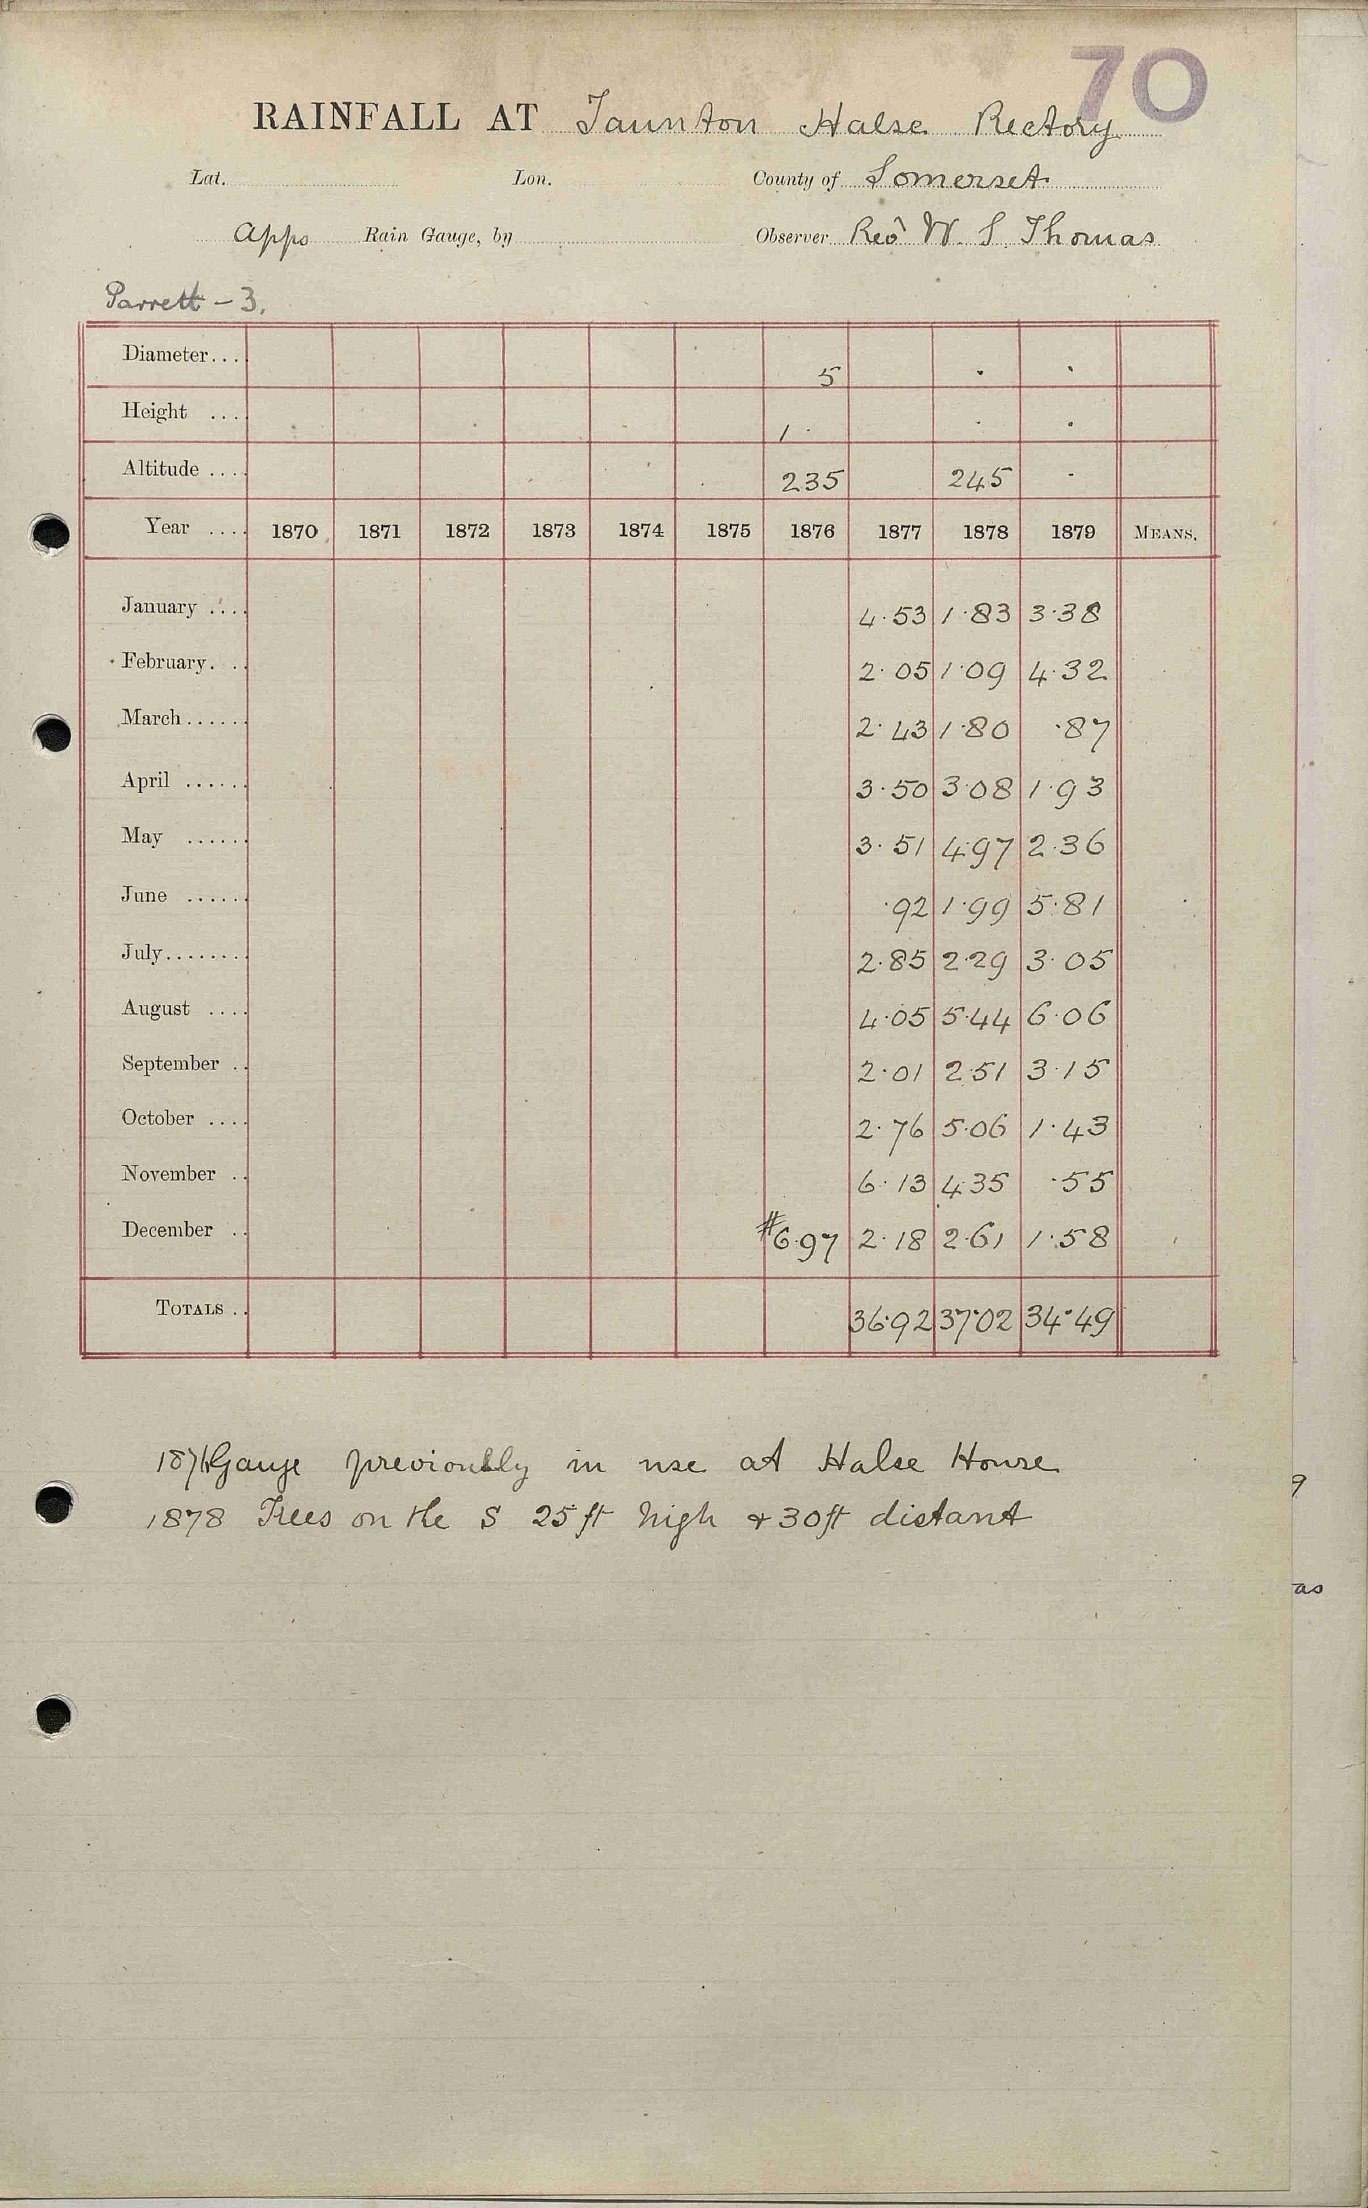 70
RAINFALL AT Taunton Halse Rectory
Lat. Lon. County of Somerset
Apps Rain Gauge, by Observer Revd W. S. Thomas
Parrett - 3.
Diameter.... 5 . .
Height .... 1 . . .
Altitude .... 235 245 .
Year .... 1870 1871 1872 1873 1874 1875 1876 1877 1878 1879 MEANS.
January .... 4.53 1.83 3.38
February. .. 2.05 1.09 4.32
March...... 2.43 1.80 .87
April ...... 3.50 3.08 1.93
May ...... 3.51 4.97 2.36
June ...... .92 1.99 5.81
July........ 2.85 2.29 3.05
August .... 4.05 5.44 6.06
September .. 2.01 2.51 3.15
October .... 2.76 5.06 1.43
November .. 6.13 4.35 .55
December .. #6.97 2.18 2.61 1.58
TOTALS .. 36.92 37.02 34.49
1876 Gauge previously in use at Halse House
1878 Trees on the S 25 ft high & 30 ft distant
9
as